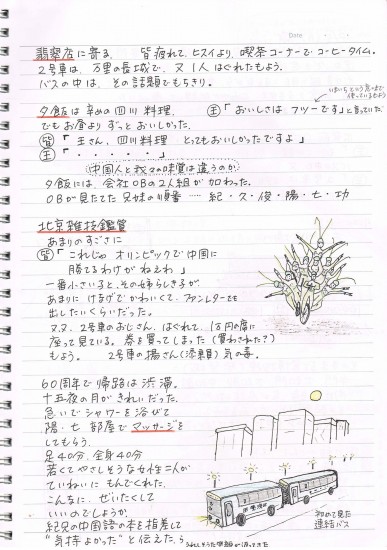 Date
翡翠店に寄る、 皆疲れて、ヒスイより、喫茶コーナーでコーヒータイム。
2号車は、万里の長城で、又1人はぐれたもよう。
バスの中は、その話題でもちきり。
夕飯は辛めの四川料理。
王「おいしさは フツーです」と言っていた
でもお昼よりずっとおいしかった。
皆「王さん、四川料理 とってもおいしかったですよ」
王「・・・・・」
中国人と我々の味覚は違うのか
夕飯には、会社OBの2人組が加わった。
OBが見たてた兄妹の順番 …… 紀・久・俊・陽・七・功
北京雑技鑑賞
あまりのすごさに
皆「これじゃ オリンピックで中国に
勝てるわけがねえわ」
一番小さいと、その姉らしき子が
あまりにけなげでかわいくて、ファンレターでも
出したいくらいだった。
又々、2号車のおじさん、はぐれて、1万円の席に
座って見ている。券を買ってしまった（買わされた？）
もよう。 2号車の揚さん（添乗員）気の毒。
60周年で帰路は渋滞。
十五夜の月がきれいだった。
急いでシャワーを浴びて
陽・七 部屋でマッサージを
してもらう。
足40分、全身40分
若くてやさしそうな女性二人が
ていねいにもんでくれた。
こんなに、ぜいたくして
いいのでしょうか
紀兄の中国語の本を指差して
"気持よかった"と伝えたら
初めて見た
連結バス